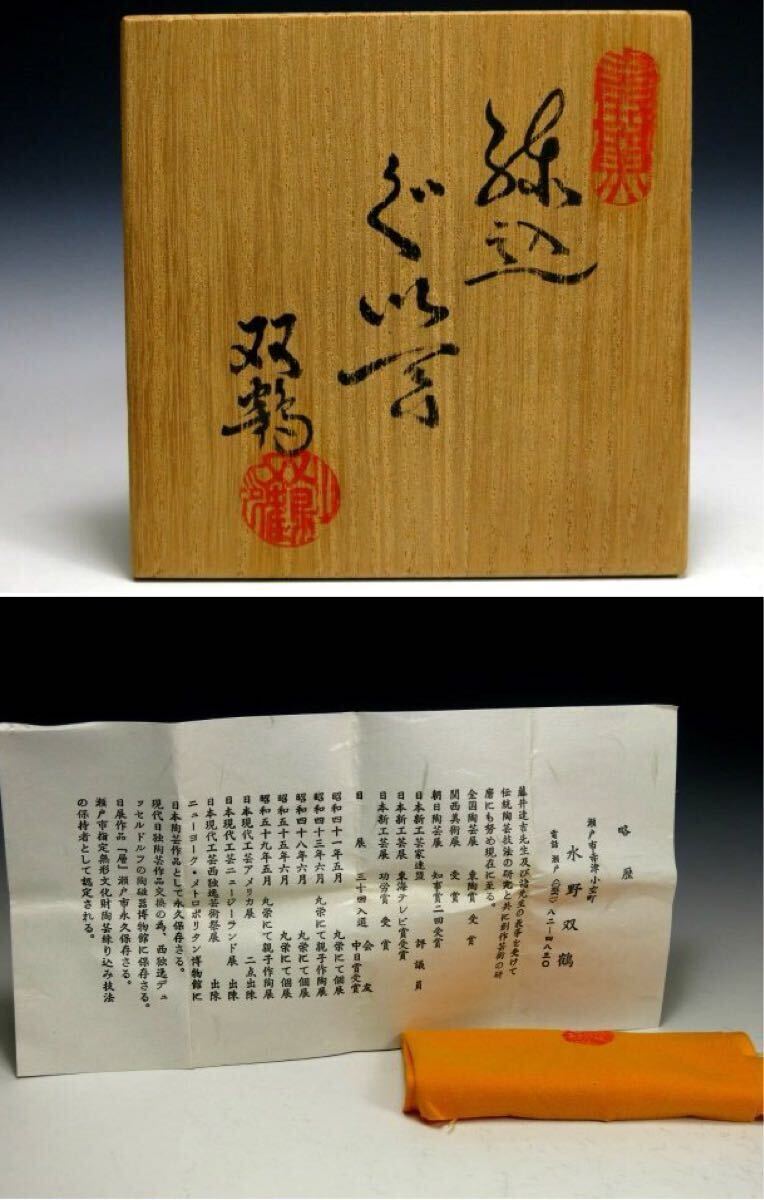 練込
ぐい呑
双鶴
略歴
瀬戸市赤津小空町
水野双鶴
電話 瀬戸(〇五六一)八二ー四八三〇
藤井達吉先生及び諸先生の教導を受けて
伝統陶芸技法の研究と共に創作芸術の研
磨にも努め現在に至る。
全国陶芸展 東陶賞受賞
関西美術展 受賞
朝日陶芸展 知事賞二回受賞
日本新工芸家連盟 評議員
日本新工芸展 東海テレビ賞受賞
日本新工芸展 功労賞受賞
日展 三十回入選 会友
中日賞受賞
昭和四十一年五月 丸栄にて個展
昭和四十三年六月 丸栄にて親子作陶展
昭和四十八年六月 丸栄にて個展
昭和五十五年六月 丸栄にて個展
昭和五十九年五月 丸栄にて親子作陶展
日本現代工芸アメリカ展 二点出陳
日本現代工芸ニュージーランド展 出陳
日本現代工芸西独逸芸術祭展 出陳
ニューヨーク・メトロポリタン博物館に
日本陶芸作品として永久保存さる。
現代日独陶芸作品交換の為、西独逸デュ
ッセルドルフの陶磁器博物館に保存さる。
日展作品「層」瀬戸市永久保存さる。
瀬戸市指定無形文化財陶芸練り込み技法
の保持者として認定される。